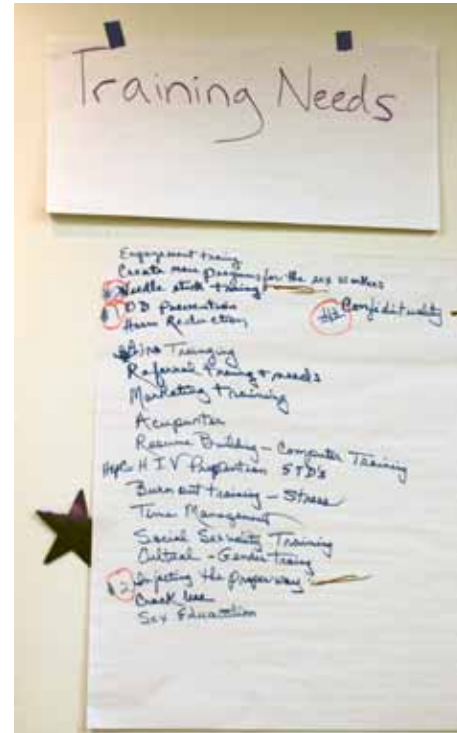 Training Needs
Engagement traing
Create more programs for the sex workers
Needle stick training
#1 OD Prevention
Harm Reduction
Confidituality
Referral traing + needs
Marketing training
Acupunter
Resume Building - Computer Training
HepC HIV STD's
Burn out training - Stress
Time Management
Social Security Training
Cultral - Gender Traing
#2 Injecting the proper way
Crack use
Sex Education